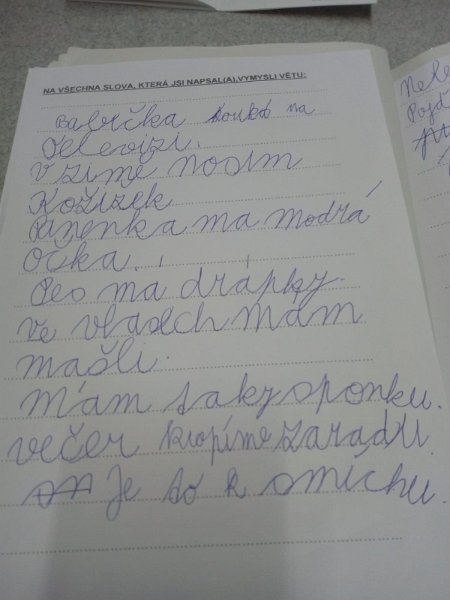 NA VŠECHNA SLOVA, KTERÁ JSI NAPSAL(A), VYMYSLI VĚTU:
Babička kouká na
televizi.
V zimě nosím
Kožíšek
Panenka ma modrá
očka.
Pes ma drápky.
Ve vlasech mám
mašli.
Mám taky sponku.
večer kropíme zarádu.
Je to k smíchu.
Pojď